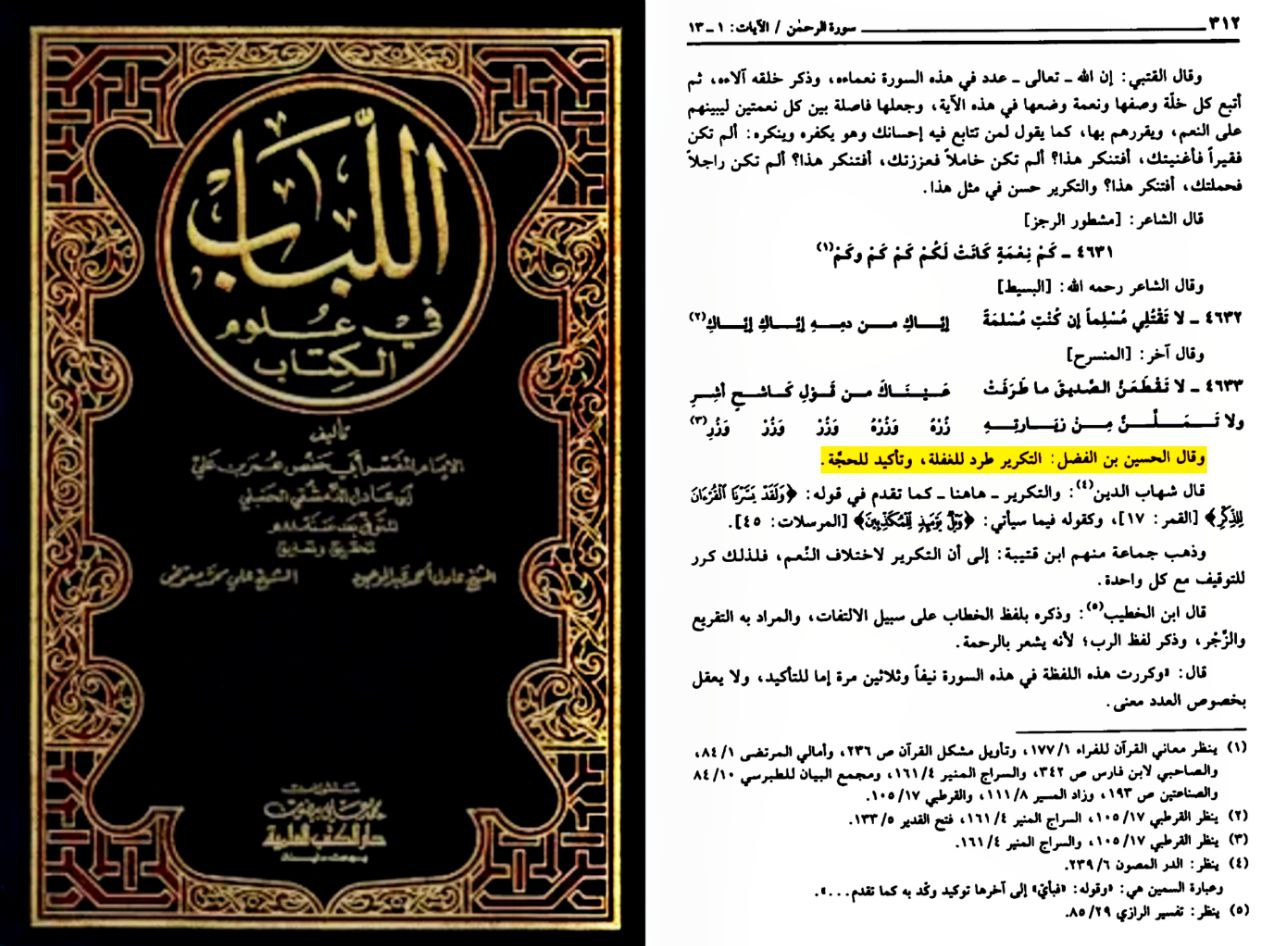 اللباب
في علوم
الكتاب
تأليف
الإمام المفسر أبي حفص عمر بن علي
ابن عادل الدمشقي الحنبلي
المتوفى بعد سنة ٨٨٠ هـ
تحقيق وتعليق
الشيخ عادل أحمد عبد الموجود الشيخ علي محمد معوض
منشورات
محمد علي بيضون
دار الكتب العلمية
بيروت - لبنان
٣١٢ سورة الرحمٰن / الآيات: ١ - ١٣
وقال القتبي: إن الله - تعالى - عدد في هذه السورة نعماءه، وذكر خلقه آلاءه، ثم
أتبع كل خلّة وصفها ونعمة وضعها في هذه الآية، وجعلها فاصلة بين كل نعمتين ليبينهم
على النعم، ويقررهم بها، كما يقول لمن تتابع فيه إحسانك وهو يكفره وينكره: ألم تكن
فقيراً فأغنيتك، أفتنكر هذا؟ ألم تكن خاملاً فعززتك، أفتنكر هذا؟ ألم تكن راجلاً
فحملتك، أفتنكر هذا؟ والتكرير حسن في مثل هذا.
قال الشاعر: [مشطور الرجز]
٤٦٣١ - كَمْ نِعْمَةٍ كَانَتْ لَكُمْ كَمْ كَمْ وَكَمْ(١)
وقال الشاعر رحمه الله: [البسيط]
٤٦٣٢ - لا تَقْتُلِي مُسْلِماً إن كُنْتِ مُسْلمَةً إيَّاكِ من دمهِ إيَّاكِ إيَّاكِ(٢)
وقال آخر: [المنسرح]
٤٦٣٣ - لا تَقْطَعَنَّ الصَّديقَ ما طَرَفَتْ عَيْنَاكَ من قَوْلِ كَاشحٍ أشِرِ
ولا تَمَلَّنَّ مِنْ زيَارتِهِ زُرْهُ وَزُرْهُ وَزُرْ وَزُرْ وَزُرِ(٣)
وقال الحسين بن الفضل: التكرير طرد للغفلة، وتأكيد للحجَّة.
قال شهاب الدين(٤): والتكرير - هاهنا - كما تقدم في قوله: ﴿وَلَقَدْ يَسَّرْنَا ٱلْقُرْءَانَ
لِلذِّكْرِ﴾ [القمر: ١٧]، وكقوله فيما سيأتي: ﴿وَيْلٌ يَوْمَئِذٍ لِّلْمُكَذِّبِينَ﴾ [المرسلات: ٤٥].
وذهب جماعة منهم ابن قتيبة: إلى أن التكرير لاختلاف النِّعم، فلذلك كرر
للتوقيف مع كل واحدة.
قال ابن الخطيب(٥): وذكره بلفظ الخطاب على سبيل الالتفات، والمراد به التقريع
والزَّجْر، وذكر لفظ الرب؛ لأنه يشعر بالرحمة.
قال: «وكررت هذه اللفظة في هذه السورة نيفاً وثلاثين مرة إما للتأكيد، ولا يعقل
بخصوص العدد معنى.
(١) ينظر معاني القرآن للفراء ١/١٧٧، وتأويل مشكل القرآن ص ٢٣٦، وأمالي المرتضى ١/٨٤،
والصاحبي لابن فارس ص ٣٤٢، والسراج المنير ٤/١٦١، ومجمع البيان للطبرسي ١٠/٨٤
والصناعتين ص ١٩٣، وزاد المسير ٨/١١١، والقرطبي ١٧/١٠٥.
(٢) ينظر القرطبي ١٧/١٠٥، السراج المنير ٤/١٦١، فتح القدير ٥/١٣٣.
(٣) ينظر القرطبي ١٧/١٠٥، والسراج المنير ٤/١٦١.
(٤) ينظر: الدر المصون ٦/٢٣٩.
وعبارة السمين هي: «وقوله: «فبأيّ» إلى آخرها توكيد وكّد به كما تقدم...».
(٥) ينظر: تفسير الرازي ٢٩/٨٥.